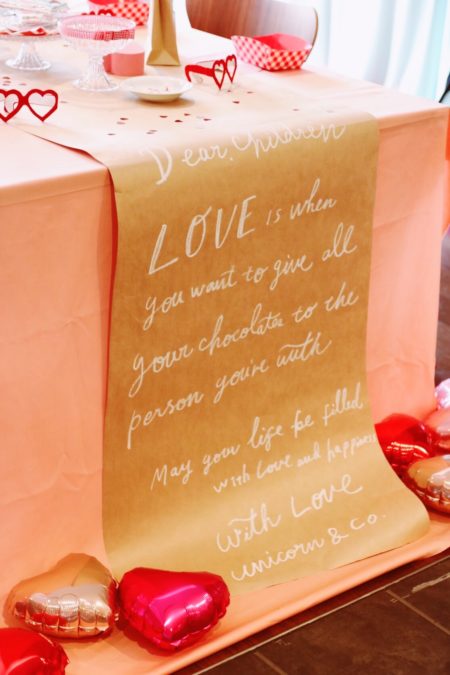 Dear, Children
LOVE is when
you want to give all
your chocolates to the
person you're with
May your life be filled
with love and happiness
With Love
unicorn & co.